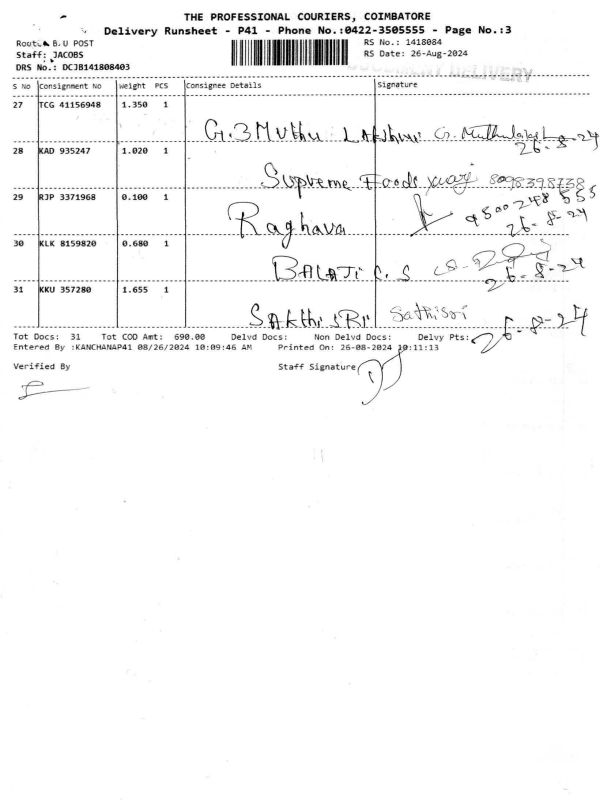 THE PROFESSIONAL COURIERS, COIMBATORE
Delivery Runsheet - P41 - Phone No.:0422-3505555 - Page No.:3
Route: B.U POST
RS No.: 1418084
Staff: JACOBS
RS Date: 26-Aug-2024
DRS No.: DCJB141808403
DELIVERY
S No Consignment No Weight PCS Consignee Details Signature
27 TCG 41156948 1.350 1
G.3 Muthu Lakshmi G. Muthulakshmi
26-8-24
28 KAD 935247 1.020 1
Supreme Foods 8098398738
29 RJP 3371968 0.100 1
Raghava 9500248555
26-8-24
30 KLK 8159820 0.680 1
BALAJI C.S
26-8-24
31 KKU 357280 1.655 1
SAkthi sRi Sathisri
26-8-24
Tot Docs: 31 Tot COD Amt: 690.00 Delvd Docs: Non Delvd Docs: Delvy Pts:
Entered By :KANCHANAP41 08/26/2024 10:09:46 AM Printed On: 26-08-2024 10:11:13
Verified By Staff Signature